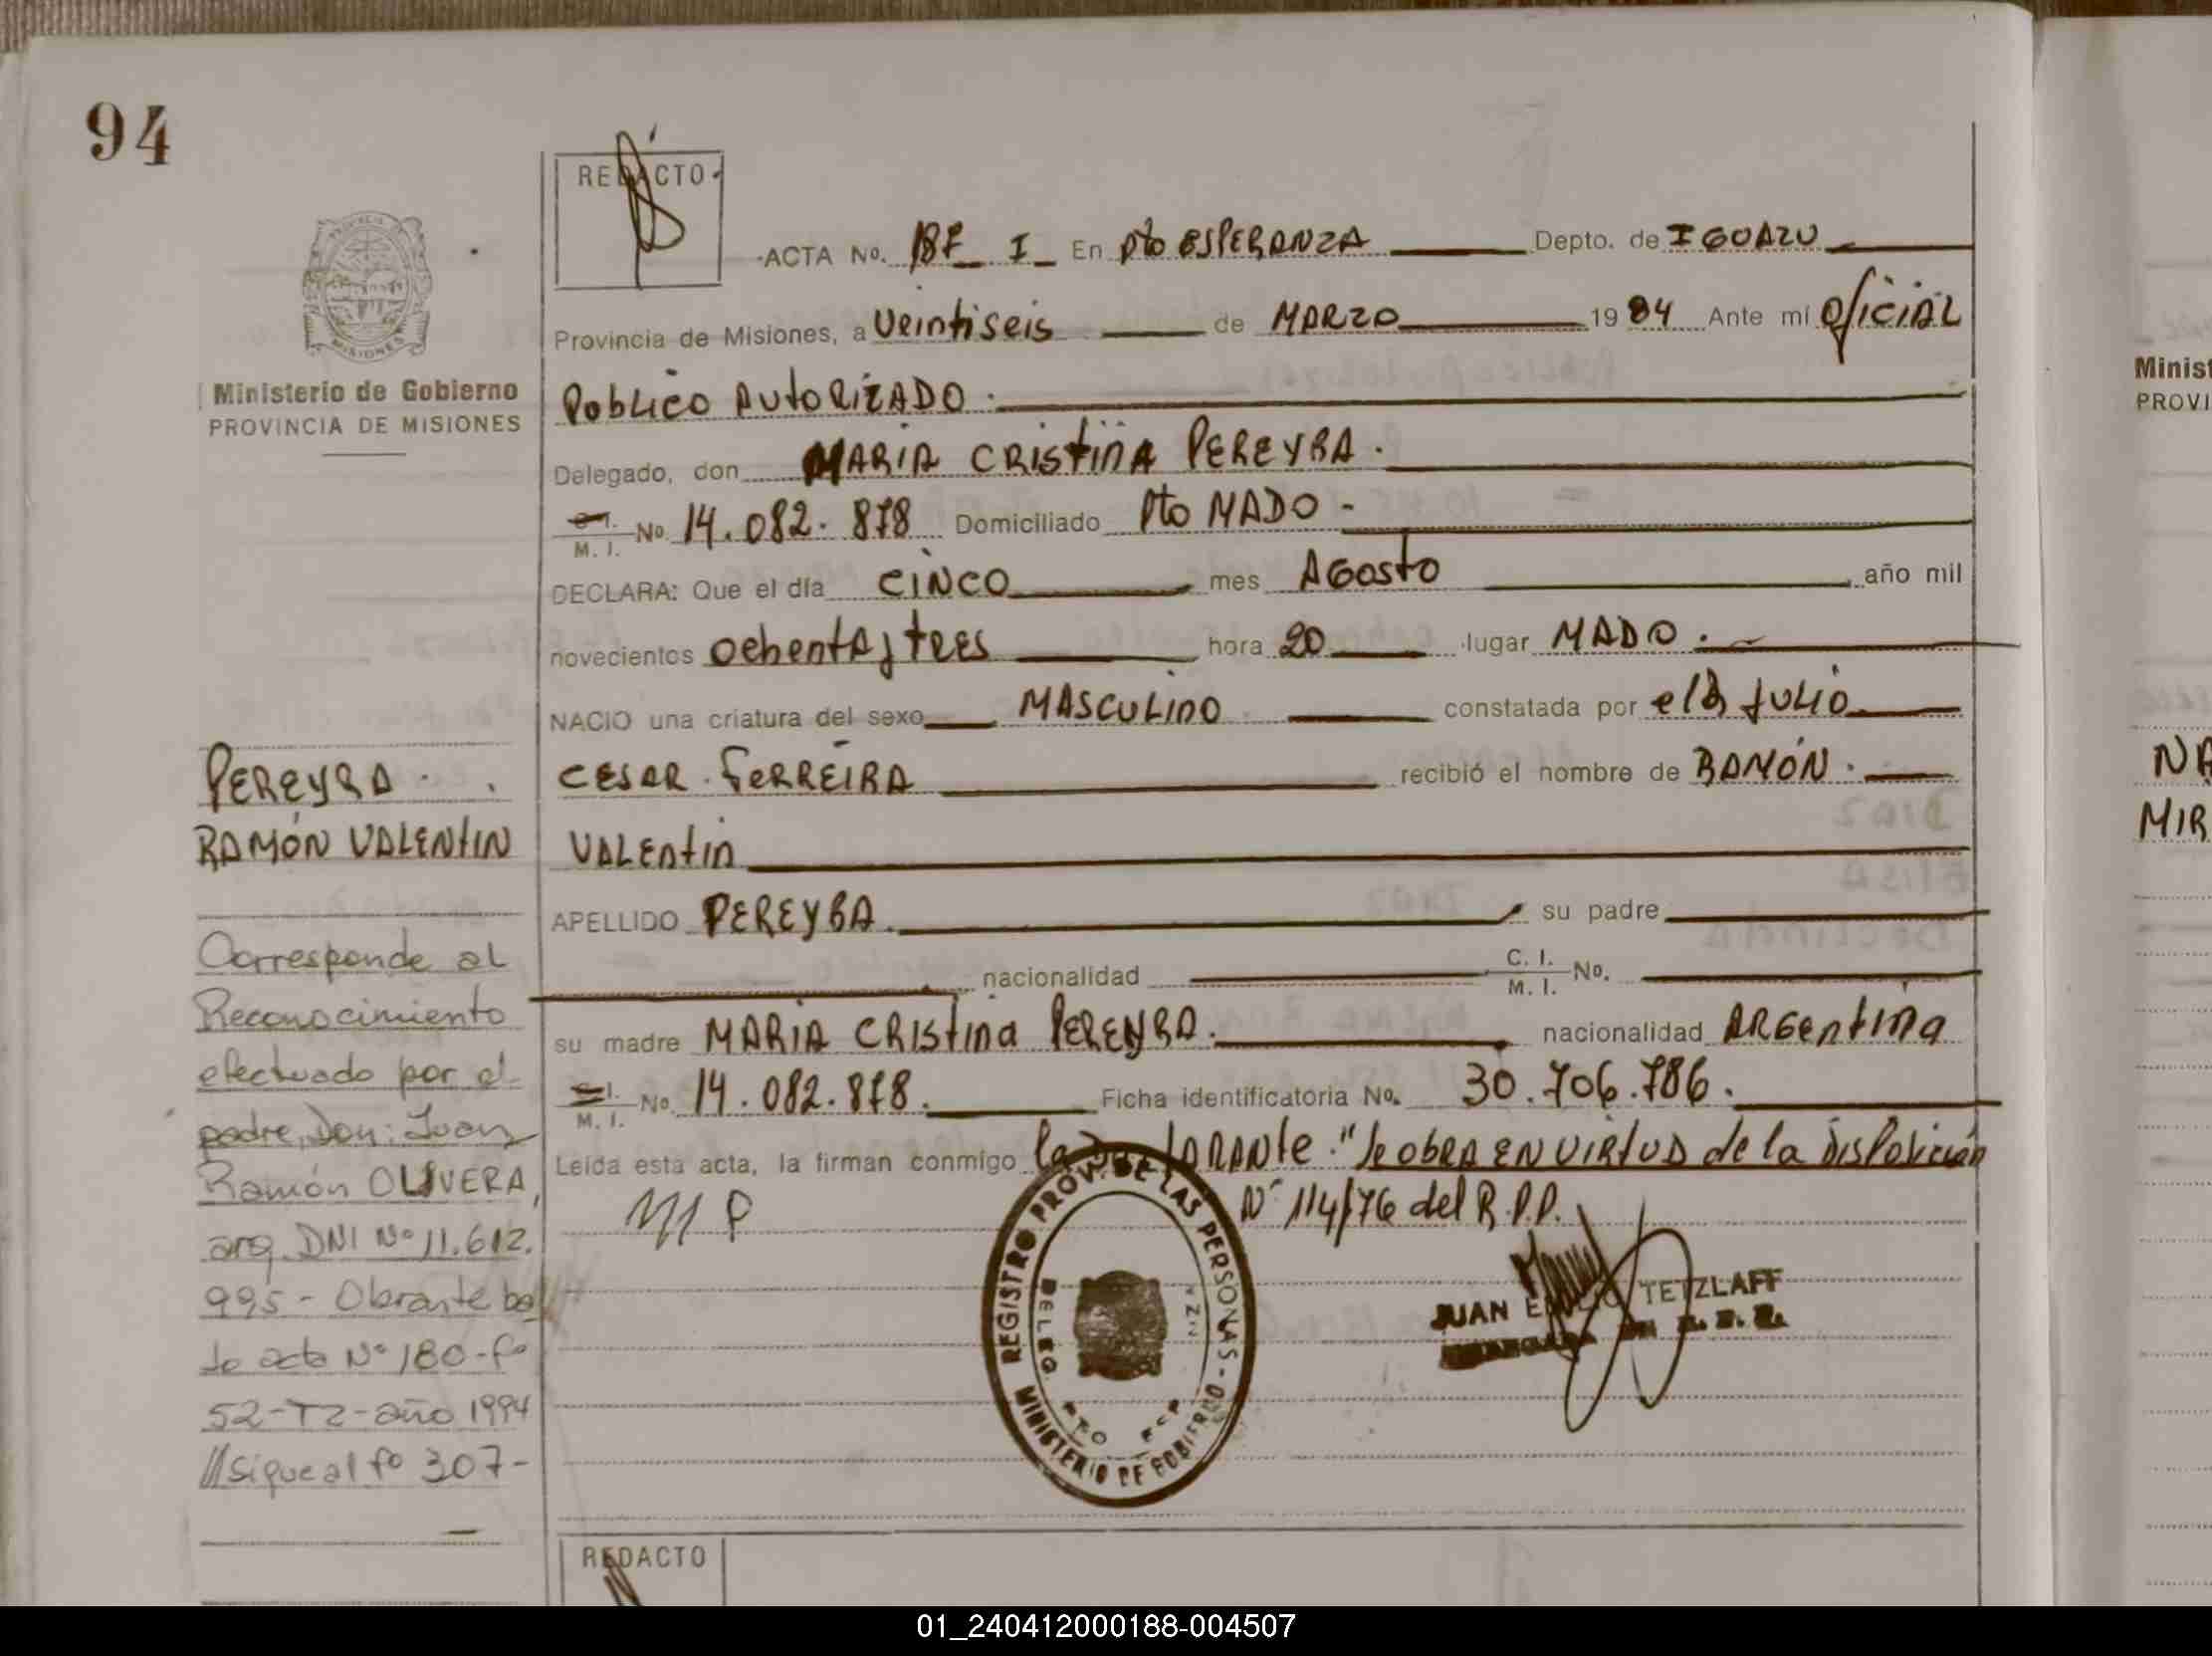 94
REDACTO
ACTA No. 187 I En Pto ESPERANZA Depto. de IGUAZU
Provincia de Misiones, a Veintiseis de MARZO 1984 Ante mí Oficial
Publico Autorizado.
Delegado, don MARIA CRISTINA PEREYRA.
C. I.
M. I. No. 14.082.878 Domiciliado Pto MADO -
DECLARA: Que el día CINCO mes AGOSTO año mil
novecientos ochenta y tres hora 20 lugar MADO.
NACIO una criatura del sexo MASCULINO constatada por el Dr JULIO
CESAR FERREIRA recibió el nombre de RAMÓN.
VALENTIN
APELLIDO PEREYRA. su padre
nacionalidad C. I.
M. I. No.
su madre MARIA CRISTINA PEREYRA. nacionalidad ARGENTINA
C. I.
M. I. No. 14.082.878. Ficha identificatoria No. 30.706.786.
Leída esta acta, la firman conmigo la DECLARANTE. "Se obra EN VIRTUD de la Disposición
Nº 114/76 del R.P.P.
M P
REGISTRO PROV. DE LAS PERSONAS
MINISTERIO DE GOBIERNO
DELEG. PTO ESP
JUAN EMILIO TETZLAFF
REDACTO
MISIONES
Ministerio de Gobierno
PROVINCIA DE MISIONES
PEREYRA.
RAMÓN VALENTIN
Corresponde al
Reconocimiento
efectuado por el
padre, Don: Juan
Ramón OLIVERA,
arg. DNI Nº 11.612.
995 - Obrante ba
jo acta Nº 180 - fº
52 - T2 - año 1994
//sigue al fº 307 -
Minist
PROVI
NA
MIR
01_240412000188-004507